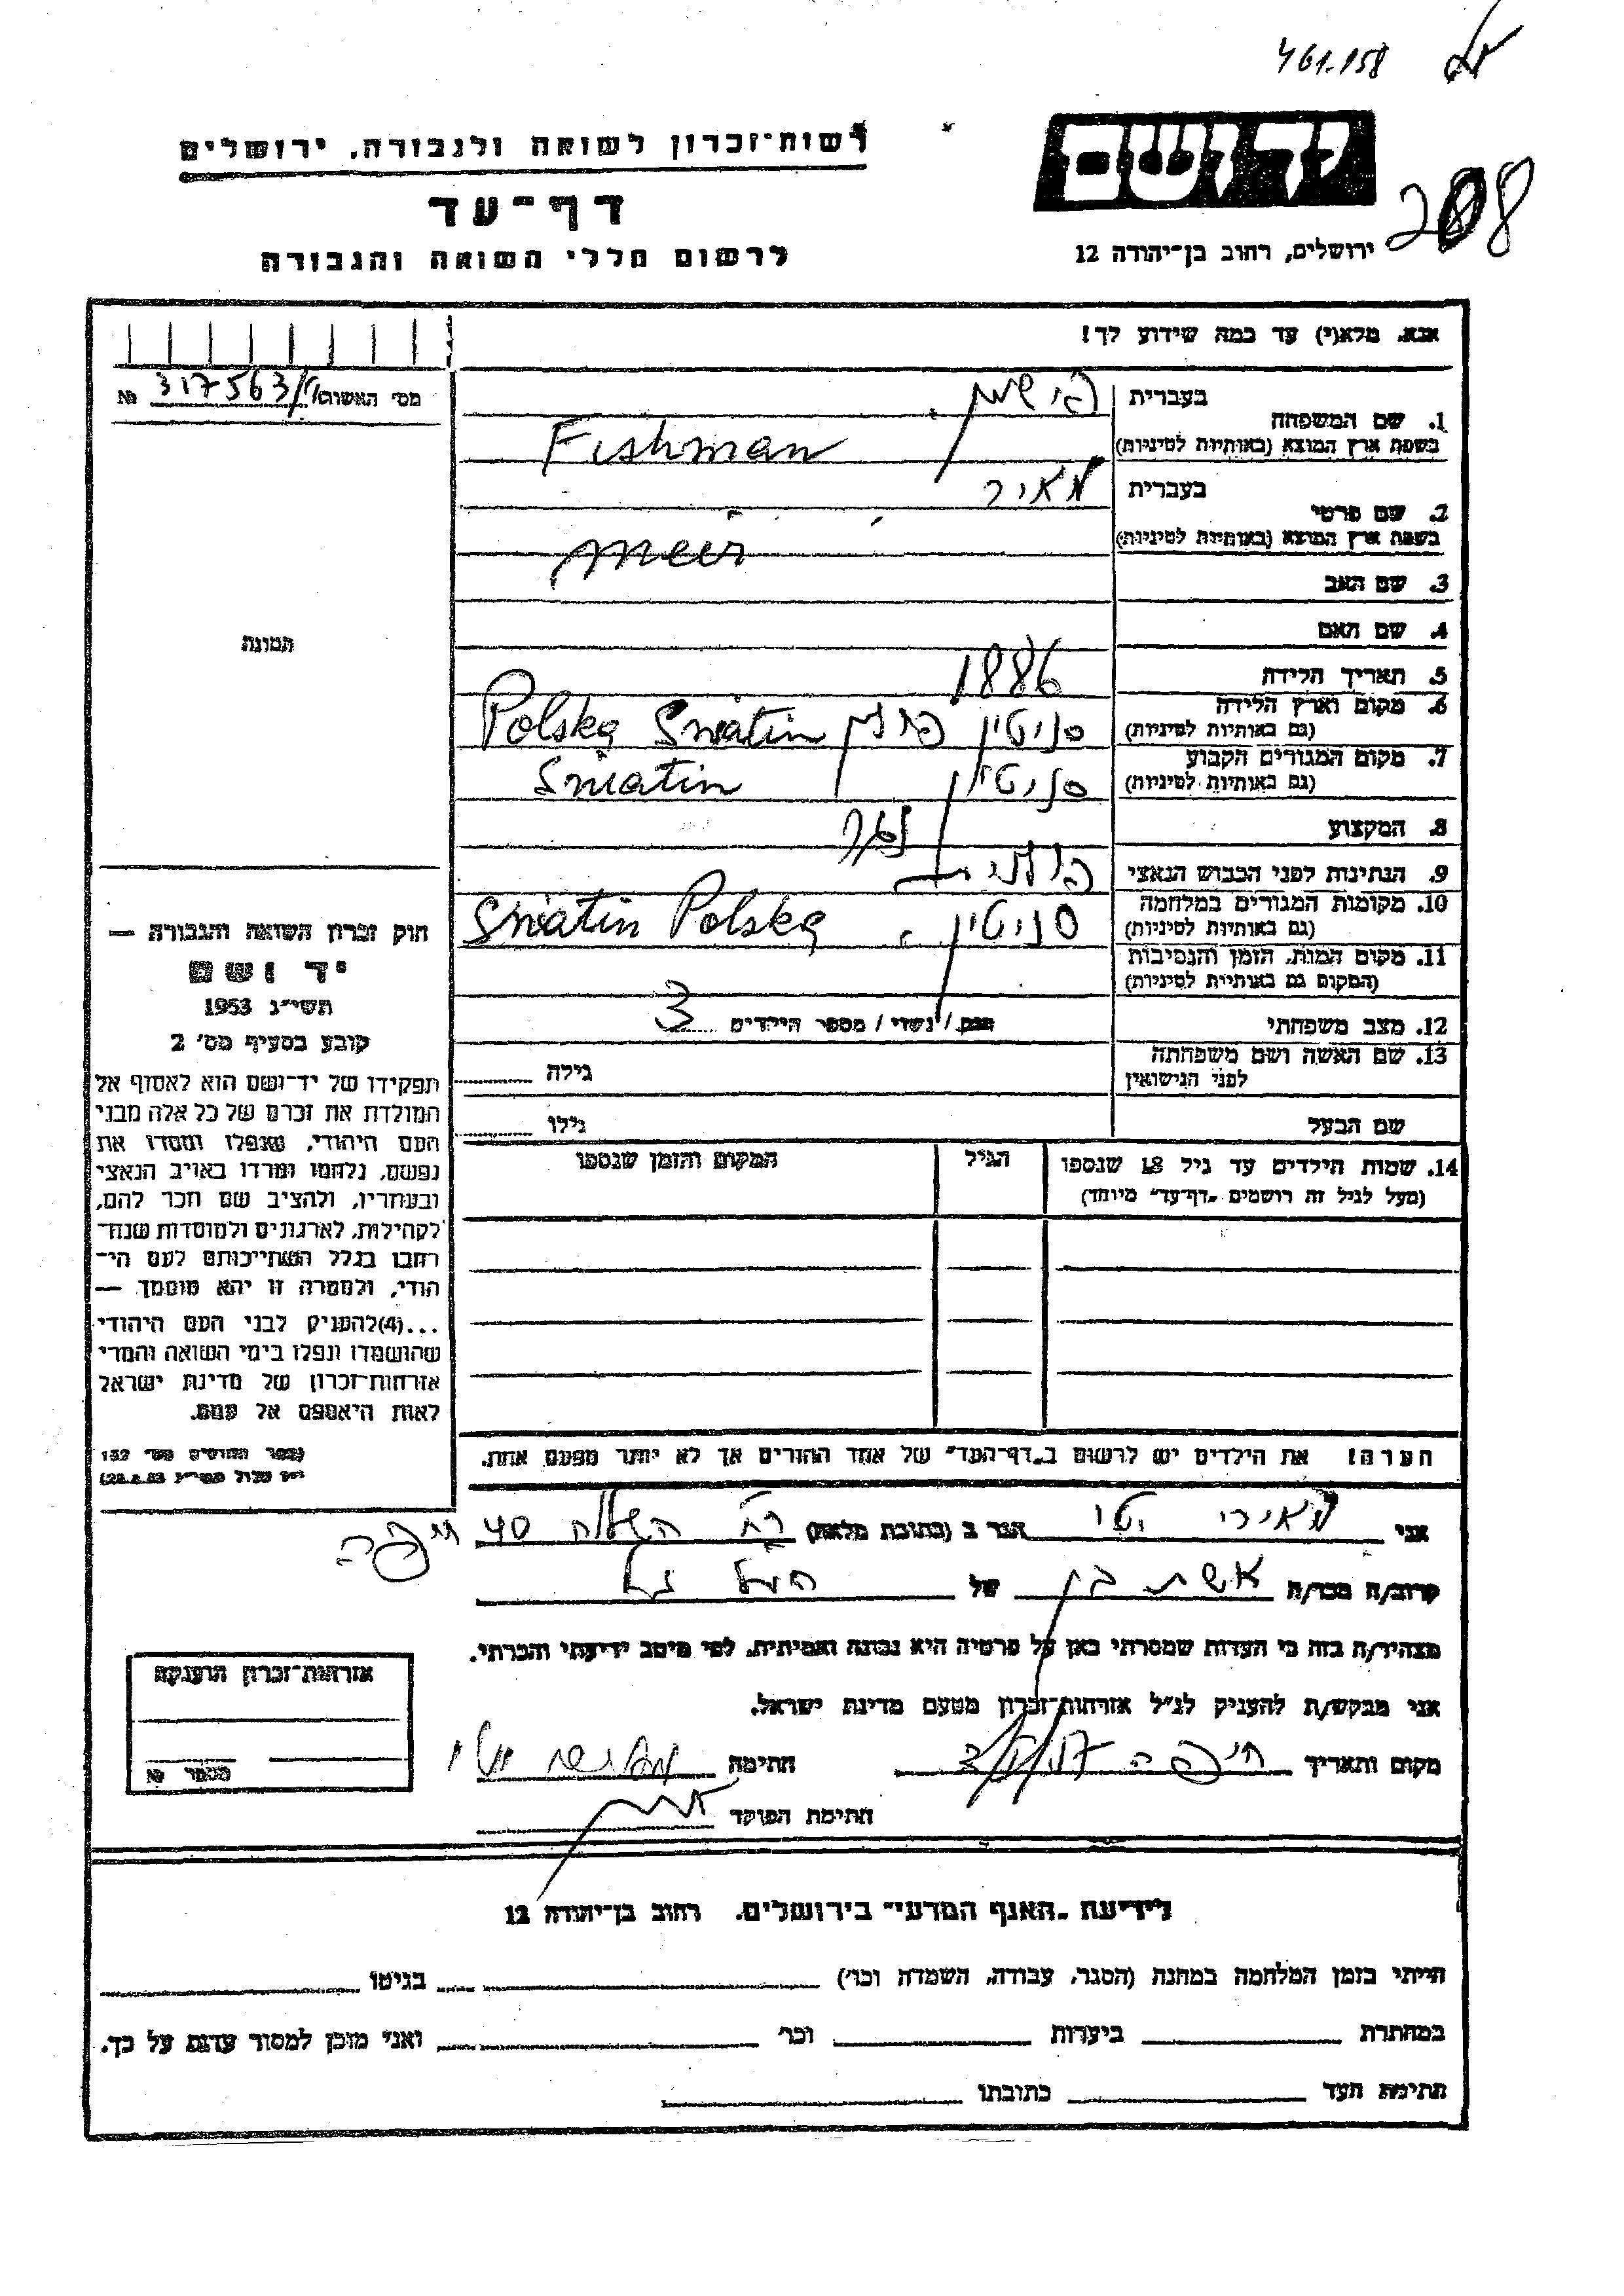 461.158
רשות־זכרון לשואה ולגבורה, ירושלים
יד ושם
208
דף־עד
ירושלים, רחוב בן־יהודה 12
לרשום חללי השואה והגבורה
אנא, מלא(י) עד כמה שידוע לך!
מס׳ האשות/ 317563/ №
1. שם המשפחה
בעברית פישמן
בשפת ארץ המוצא (באותיות לטיניות) Fishman
2. שם פרטי
בעברית מאיר
בשפת ארץ המוצא (באותיות לטיניות) Meir
3. שם האב
4. שם האם
תמונה
5. תאריך הלידה 1886
6. מקום וארץ הלידה
(גם באותיות לטיניות) סניטין פולין Sniatin Polska
7. מקום המגורים הקבוע
(גם באותיות לטיניות) סניטין Sniatin
8. המקצוע
9. הנתינות לפני הכבוש הנאצי פולנית
10. מקומות המגורים במלחמה
(גם באותיות לטיניות) סניטין, Sniatin Polska
11. מקום המות, הזמן והנסיבות
(המקום גם באותיות לטיניות)
12. מצב משפחתי רווק / נשוי / מספר הילדים 3
13. שם האשה ושם משפחתה
לפני הנישואין גילה
שם הבעל גילו
14. שמות הילדים עד גיל 18 שנספו הגיל המקום והזמן שנספו
(מעל לגיל זה רושמים „דף־עד״ מיוחד)
חוק זכרון השואה והגבורה —
יד ושם
תשי״ג 1953
קובע בסעיף מס׳ 2
תפקידו של יד־ושם הוא לאסוף אל
המולדת את זכרם של כל אלה מבני
העם היהודי, שנפלו ומסרו את
נפשם, נלחמו ומרדו באויב הנאצי
ובעוזריו, ולהציב שם וזכר להם,
לקהילות, לארגונים ולמוסדות שנח־
רבו בגלל השתייכותם לעם הי־
הודי, ולמטרה זו יהא מוסמך —
...(4) להעניק לבני העם היהודי
שהושמדו ונפלו בימי השואה והמרי
אזרחות־זכרון של מדינת ישראל
לאות היאספם אל עמם.
(ספר החוקים מס׳ 132
י״ז אלול תשי״ג 28.8.53)
הערה! את הילדים יש לרשום ב„דף־העד״ של אחד ההורים אך לא יותר מפעם אחת.
אני מאירי הגר ב (כתובת מלאה) רח׳ 40 חיפה
קרוב/ה מכר/ה אשת בן של הנ״ל
מצהיר/ה בזה כי העדות שמסרתי כאן על פרטיה היא נכונה ואמיתית, לפי מיטב ידיעתי והכרתי.
אני מבקש/ת להעניק לנ״ל אזרחות־זכרון מטעם מדינת ישראל.
מקום ותאריך חיפה חתימה
חתימת הפוקד
אזרחות־זכרון הוענקה
מספר №
לידיעת „האגף המדעי״ בירושלים. רחוב בן־יהודה 12
הייתי בזמן המלחמה במחנה (הסגר, עבודה, השמדה וכו׳) בגיטו
במחתרת ביערות וכו׳ ואני מוכן למסור עדות על כך.
חתימת העד כתובתו